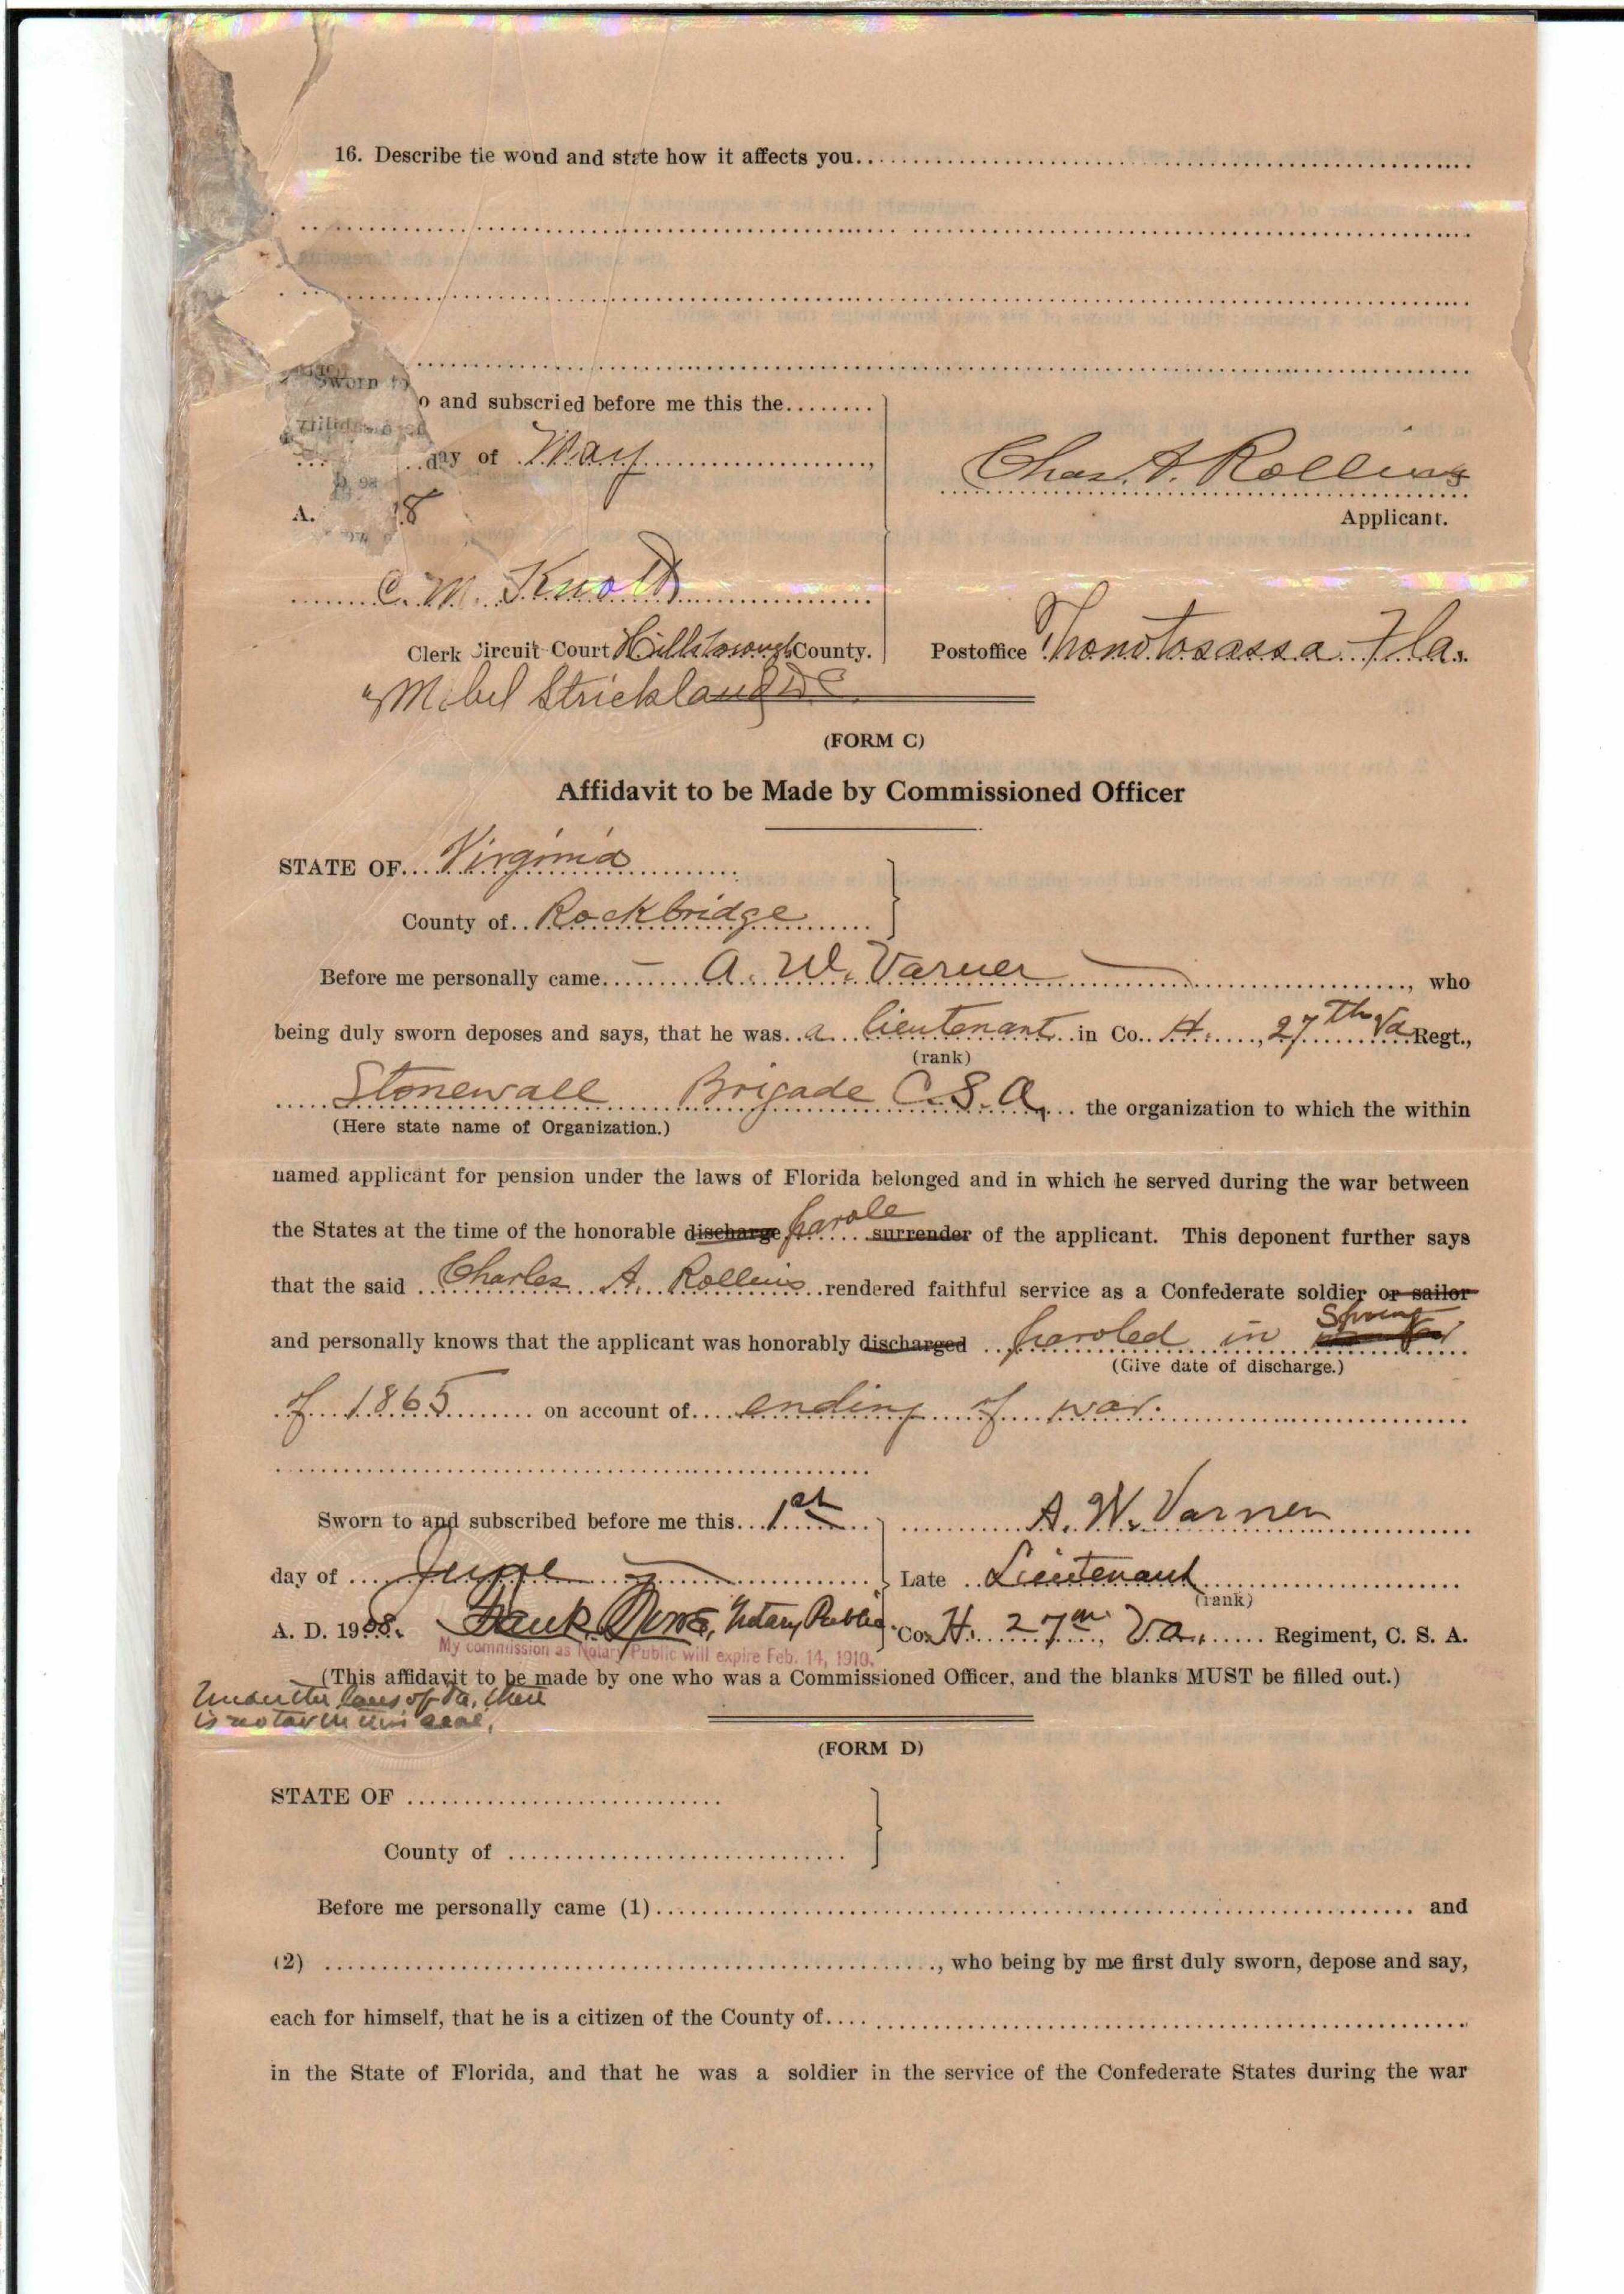 16. Describe tie wound and state how it affects you
Sworn to
o and subscried before me this the
day of May
A. 18
Chas. A. Rollins
Applicant.
C. M. Knott
Clerk Circuit Court Hillsborough County.
Postoffice Thonotosassa Fla.
Mabel Strickland DC
(FORM C)
Affidavit to be Made by Commissioned Officer
STATE OF Virginia
County of Rockbridge
Before me personally came A. W. Varner, who
being duly sworn deposes and says, that he was a lieutenant in Co. H., 27th Va Regt.,
(rank)
Stonewall Brigade C. S. A. the organization to which the within
(Here state name of Organization.)
named applicant for pension under the laws of Florida belonged and in which he served during the war between
the States at the time of the honorable discharge parole surrender of the applicant. This deponent further says
that the said Charles A. Rollins rendered faithful service as a Confederate soldier or sailor
and personally knows that the applicant was honorably discharged paroled in Spring
(Give date of discharge.)
of 1865 on account of ending of war.
Sworn to and subscribed before me this 1st
day of June
A. D. 1908. Notary Public
My commission as Notary Public will expire Feb. 14, 1910.
A. W. Varner
Late Lieutenant
(rank)
Co. H. 27th Va. Regiment, C. S. A.
(This affidavit to be made by one who was a Commissioned Officer, and the blanks MUST be filled out.)
Under the laws of Va. there
is no
(FORM D)
STATE OF
County of
Before me personally came (1) and
(2) , who being by me first duly sworn, depose and say,
each for himself, that he is a citizen of the County of
in the State of Florida, and that he was a soldier in the service of the Confederate States during the war